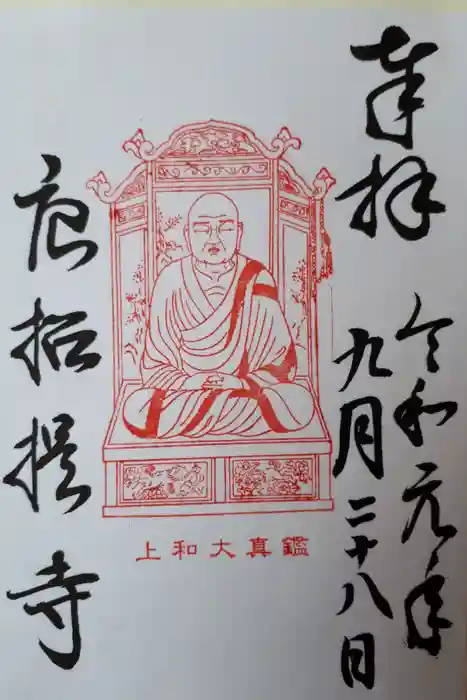 奉拝
令和元年
九月二十八日
上和大真鑑
唐招提寺